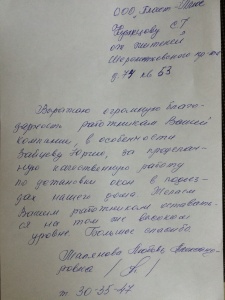 ООО „Пласт-Тик
Кузнецову С.Т
от жителей
Старопетровского пр-та
д. 74 кв 53.
Выражаю огромную благо-
дарность работникам Вашей
компании, в особенности
Бабцову Борису, за продел[ан]
ную качественную работу
по установке окон в подъез-
дах нашего дома Желаем
Вашим работникам оставать
ся на том же высоком
уровне Большое спасибо.
Любовь Александ-
ровна
т 30-35-47